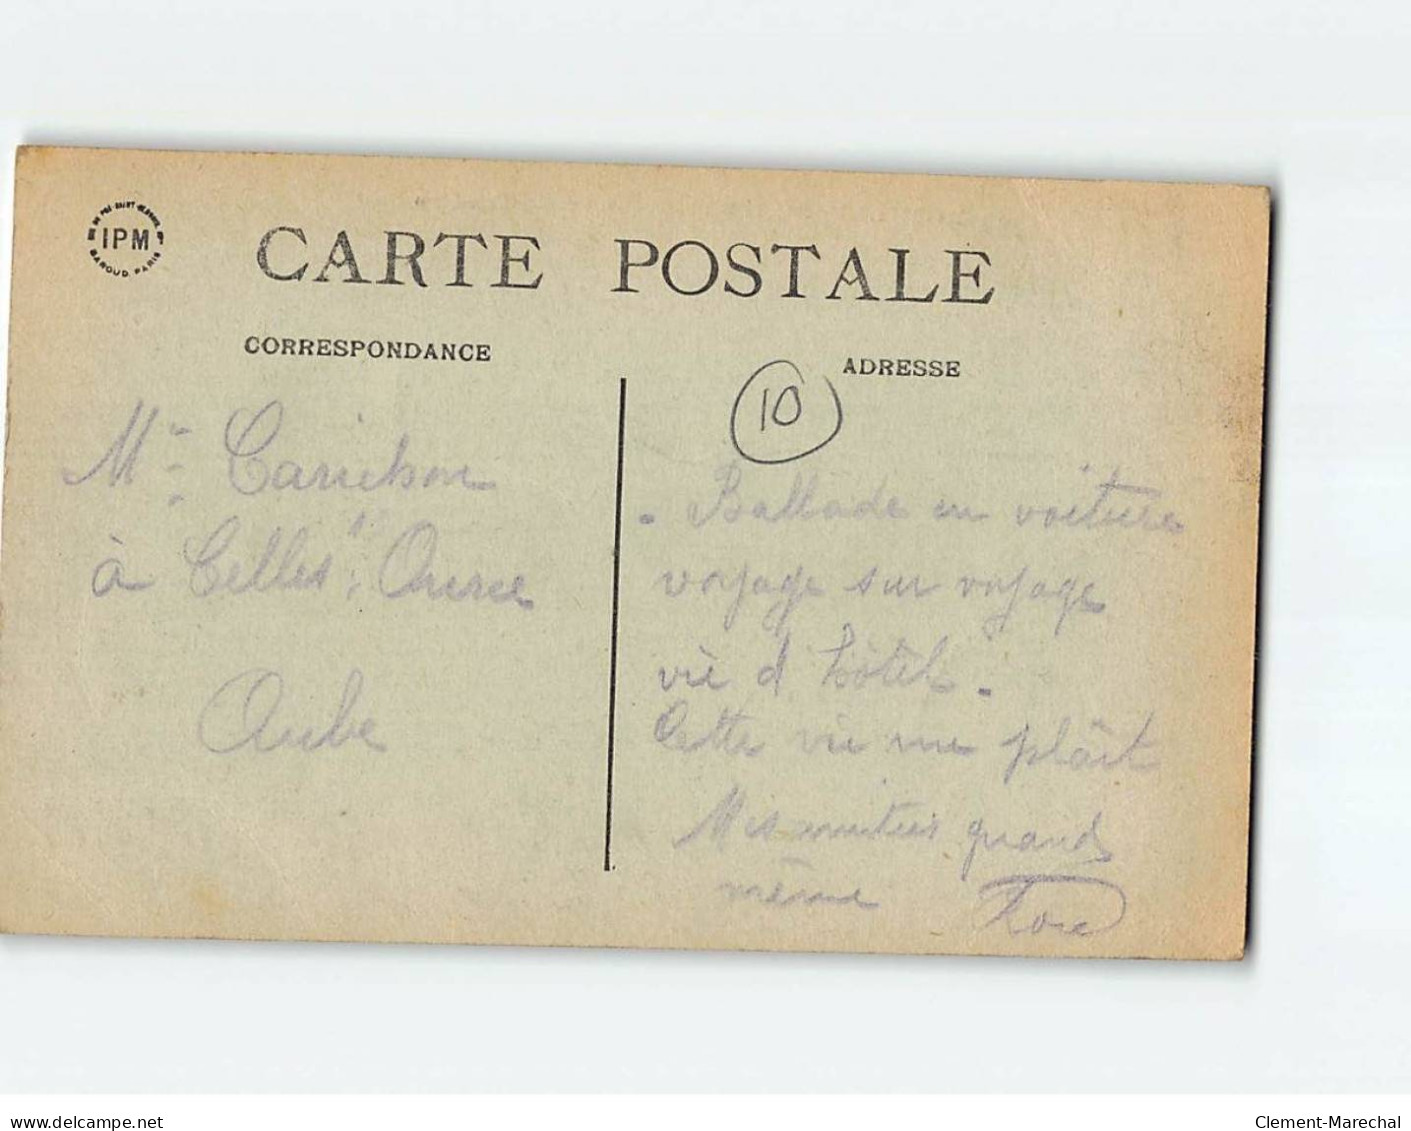 IPM
BAROUD, PARIS
CARTE POSTALE
CORRESPONDANCE
ADRESSE
10
Mme Carichon
à Celles s/ Ource
Aube
- Ballade en voiture
voyage sur voyage
vie d'hôtel -
Cette vie me plaît
quand
même
www.delcampe.net
Clement-Marechal